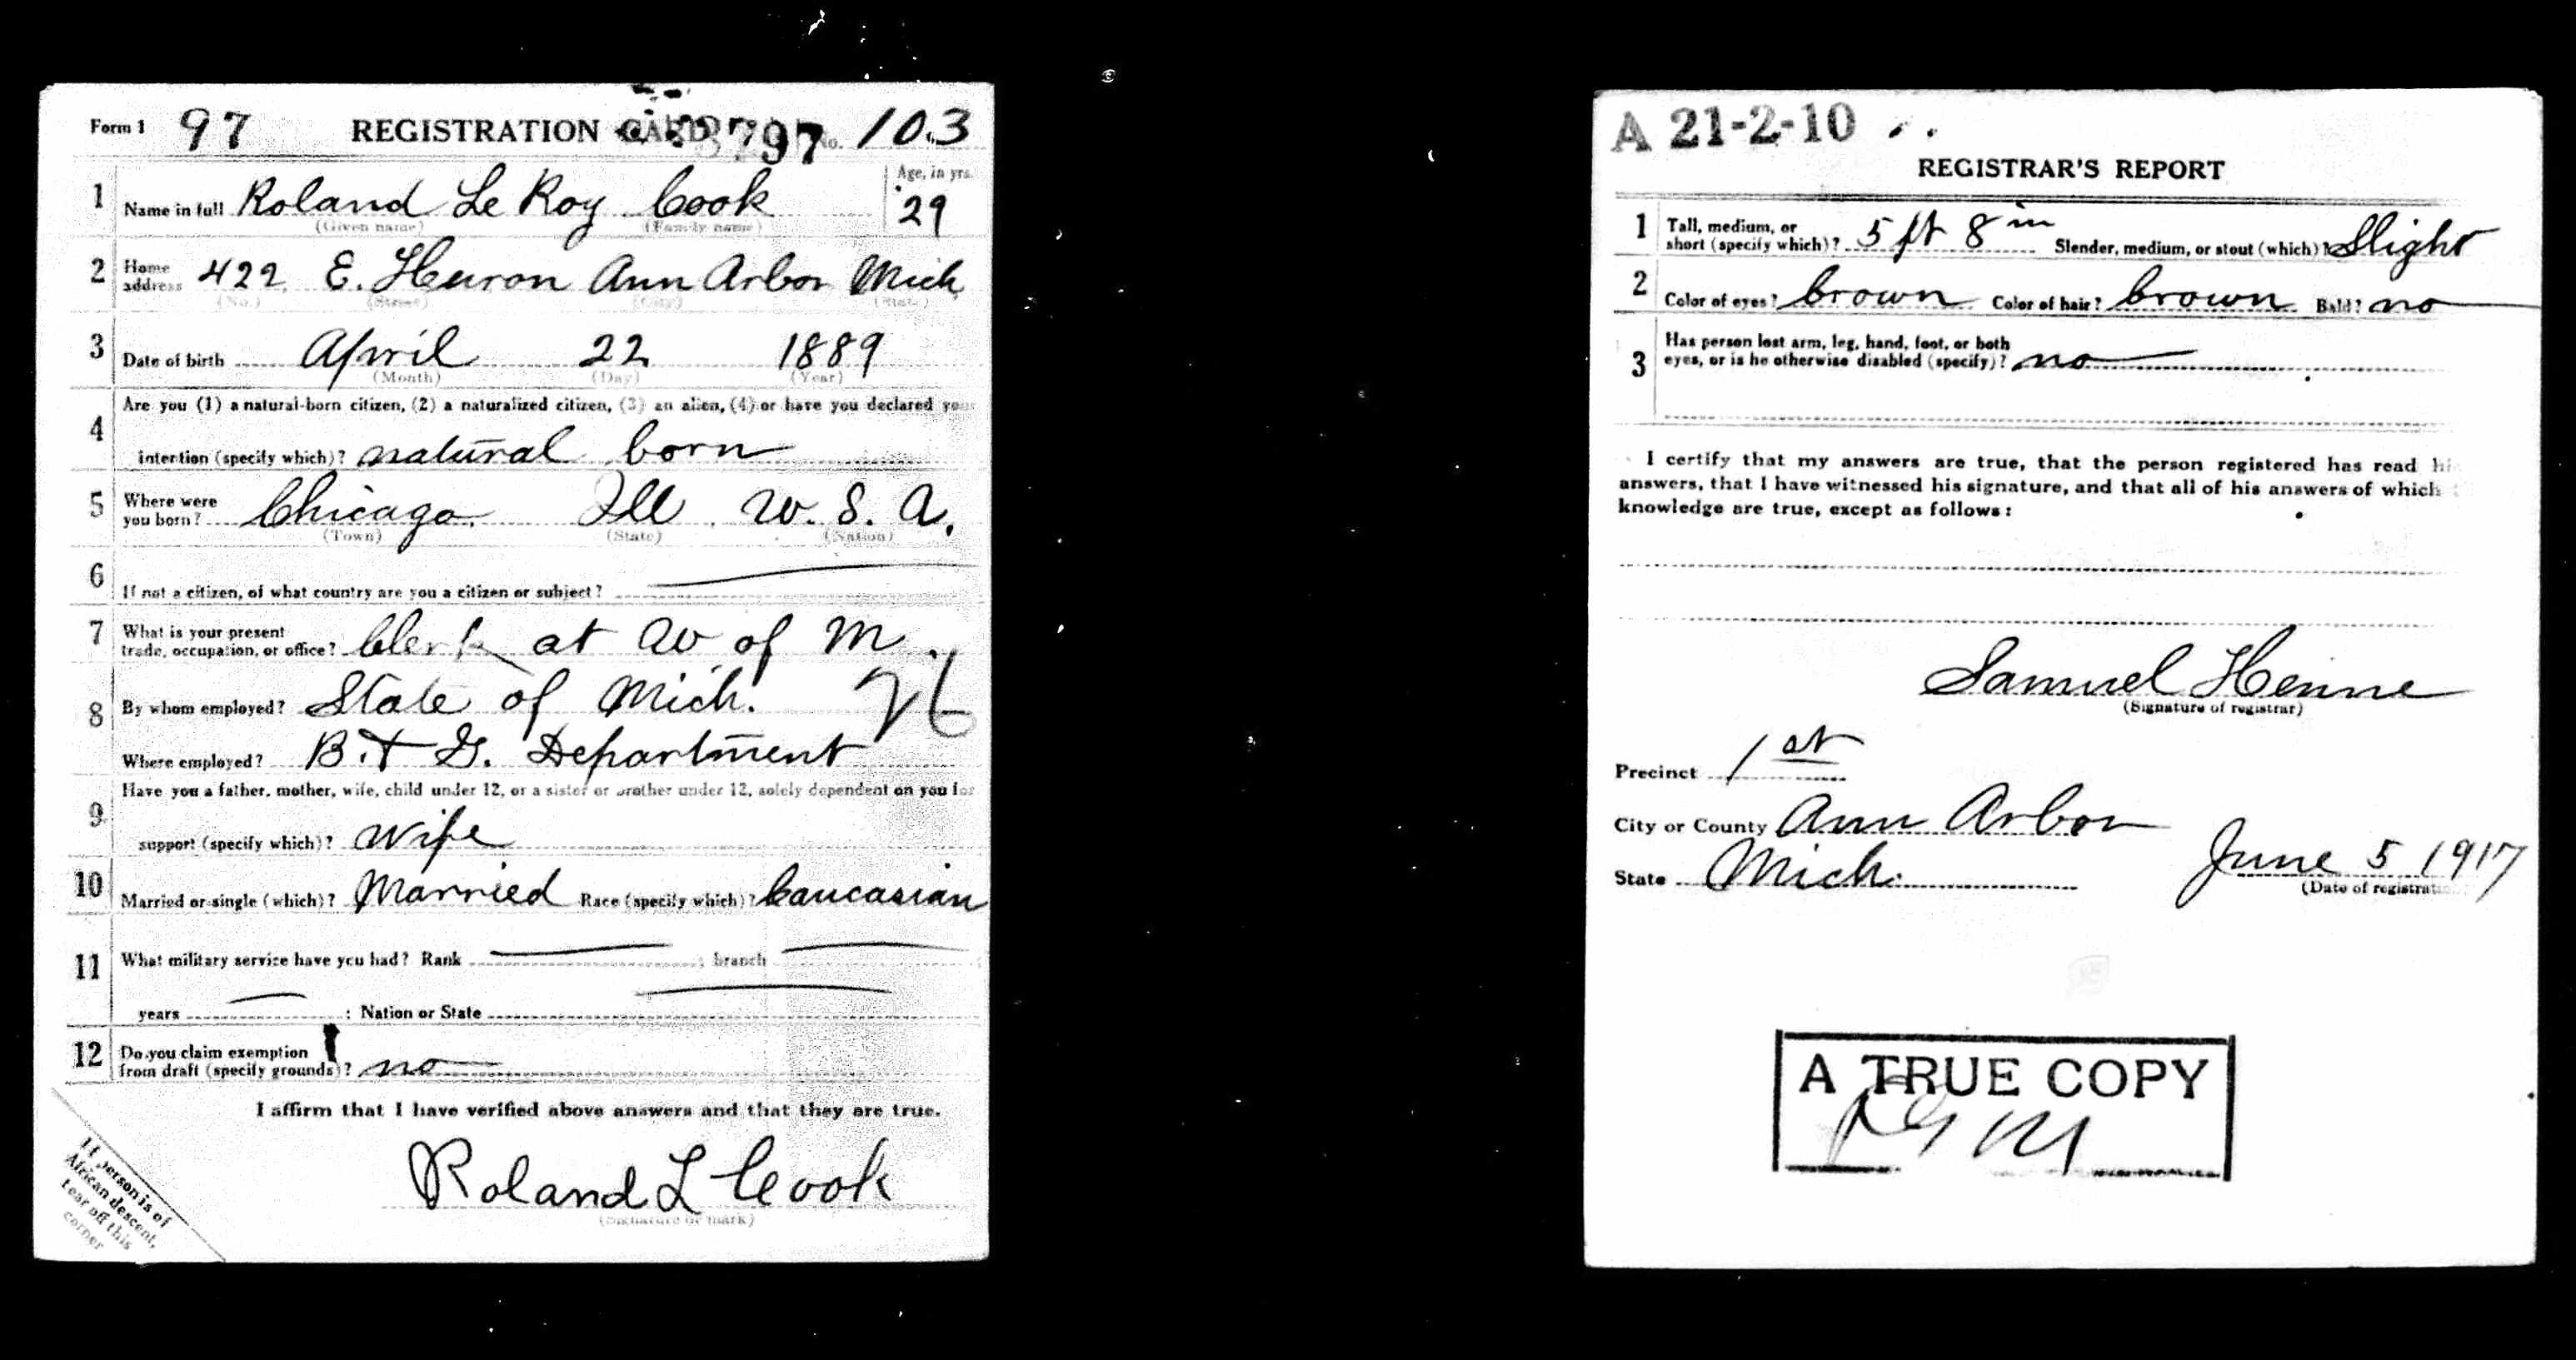 Form 1 97 REGISTRATION CARD 797 No. 103
1 Name in full Roland Le Roy Cook Age, in yrs. 29
(Given name) (Family name)
2 Home address 422 E. Huron Ann Arbor Mich
(No.) (Street) (City) (State)
3 Date of birth April 22 1889
(Month) (Day) (Year)
Are you (1) a natural-born citizen, (2) a naturalized citizen, (3) an alien, (4) or have you declared your
4 intention (specify which)? natural born
5 Where were you born? Chicago Ill U. S. A.
(Town) (State) (Nation)
6 If not a citizen, of what country are you a citizen or subject?
7 What is your present trade, occupation, or office? Clerk at U of M.
8 By whom employed? State of Mich. 26
Where employed? B. & G. Department
Have you a father, mother, wife, child under 12, or a sister or brother under 12, solely dependent on you for
9 support (specify which)? Wife
10 Married or single (which)? Married Race (specify which)? Caucasian
11 What military service have you had? Rank ; branch
years ; Nation or State
12 Do you claim exemption from draft (specify grounds)? no
I affirm that I have verified above answers and that they are true.
Roland L Cook
(Signature or mark)
If person is of
African descent,
tear off this
corner
A 21-2-10
REGISTRAR'S REPORT
1 Tall, medium, or short (specify which)? 5 ft 8 in Slender, medium, or stout (which)? Slight
2 Color of eyes? brown Color of hair? brown Bald? no
3 Has person lost arm, leg, hand, foot, or both
eyes, or is he otherwise disabled (specify)? no
I certify that my answers are true, that the person registered has read his
answers, that I have witnessed his signature, and that all of his answers of which
knowledge are true, except as follows:
Samuel Henne
(Signature of registrar)
Precinct 1st
City or County Ann Arbor
State Mich. June 5 1917
(Date of registration)
A TRUE COPY